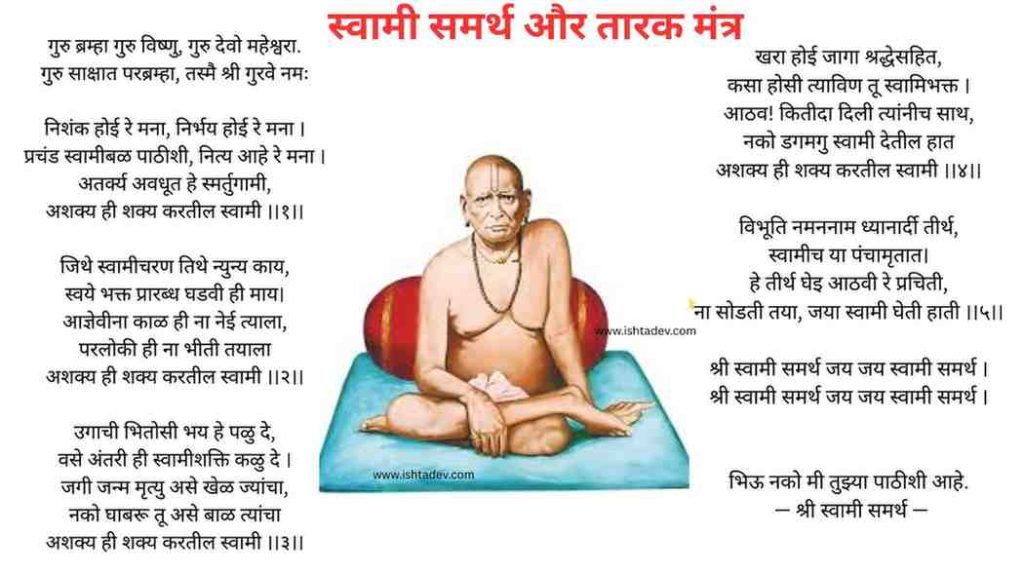 स्वामी समर्थ और तारक मंत्र
गुरु ब्रम्हा गुरु विष्णु, गुरु देवो महेश्वरा.
गुरु साक्षात परब्रम्हा, तस्मै श्री गुरवे नमः
निशंक होई रे मना, निर्भय होई रे मना ।
प्रचंड स्वामीबळ पाठीशी, नित्य आहे रे मना ।
अतर्क्य अवधूत हे स्मर्तुगामी,
अशक्य ही शक्य करतील स्वामी ।।१।।
जिथे स्वामीचरण तिथे न्युन्य काय,
स्वये भक्त प्रारब्ध घडवी ही माय।
आज्ञेवीना काळ ही ना नेई त्याला,
परलोकी ही ना भीती तयाला
अशक्य ही शक्य करतील स्वामी ।।२।।
उगाची भितोसी भय हे पळु दे,
वसे अंतरी ही स्वामीशक्ति कळु दे ।
जगी जन्म मृत्यु असे खेळ ज्यांचा,
नको घाबरू तू असे बाळ त्यांचा
अशक्य ही शक्य करतील स्वामी ।।३।।
खरा होई जागा श्रद्धेसहित,
कसा होसी त्याविण तू स्वामिभक्त ।
आठव! कितीदा दिली त्यांनीच साथ,
नको डगमगु स्वामी देतील हात
अशक्य ही शक्य करतील स्वामी ।।४।।
विभूति नमननाम ध्यानार्दी तीर्थ,
स्वामीच या पंचामृतात।
हे तीर्थ घेइ आठवी रे प्रचिती,
ना सोडती तया, जया स्वामी घेती हाती ।।५।।
श्री स्वामी समर्थ जय जय स्वामी समर्थ ।
श्री स्वामी समर्थ जय जय स्वामी समर्थ ।
भिऊ नको मी तुझ्या पाठीशी आहे.
— श्री स्वामी समर्थ —
www.ishtadev.com
www.ishtadev.com